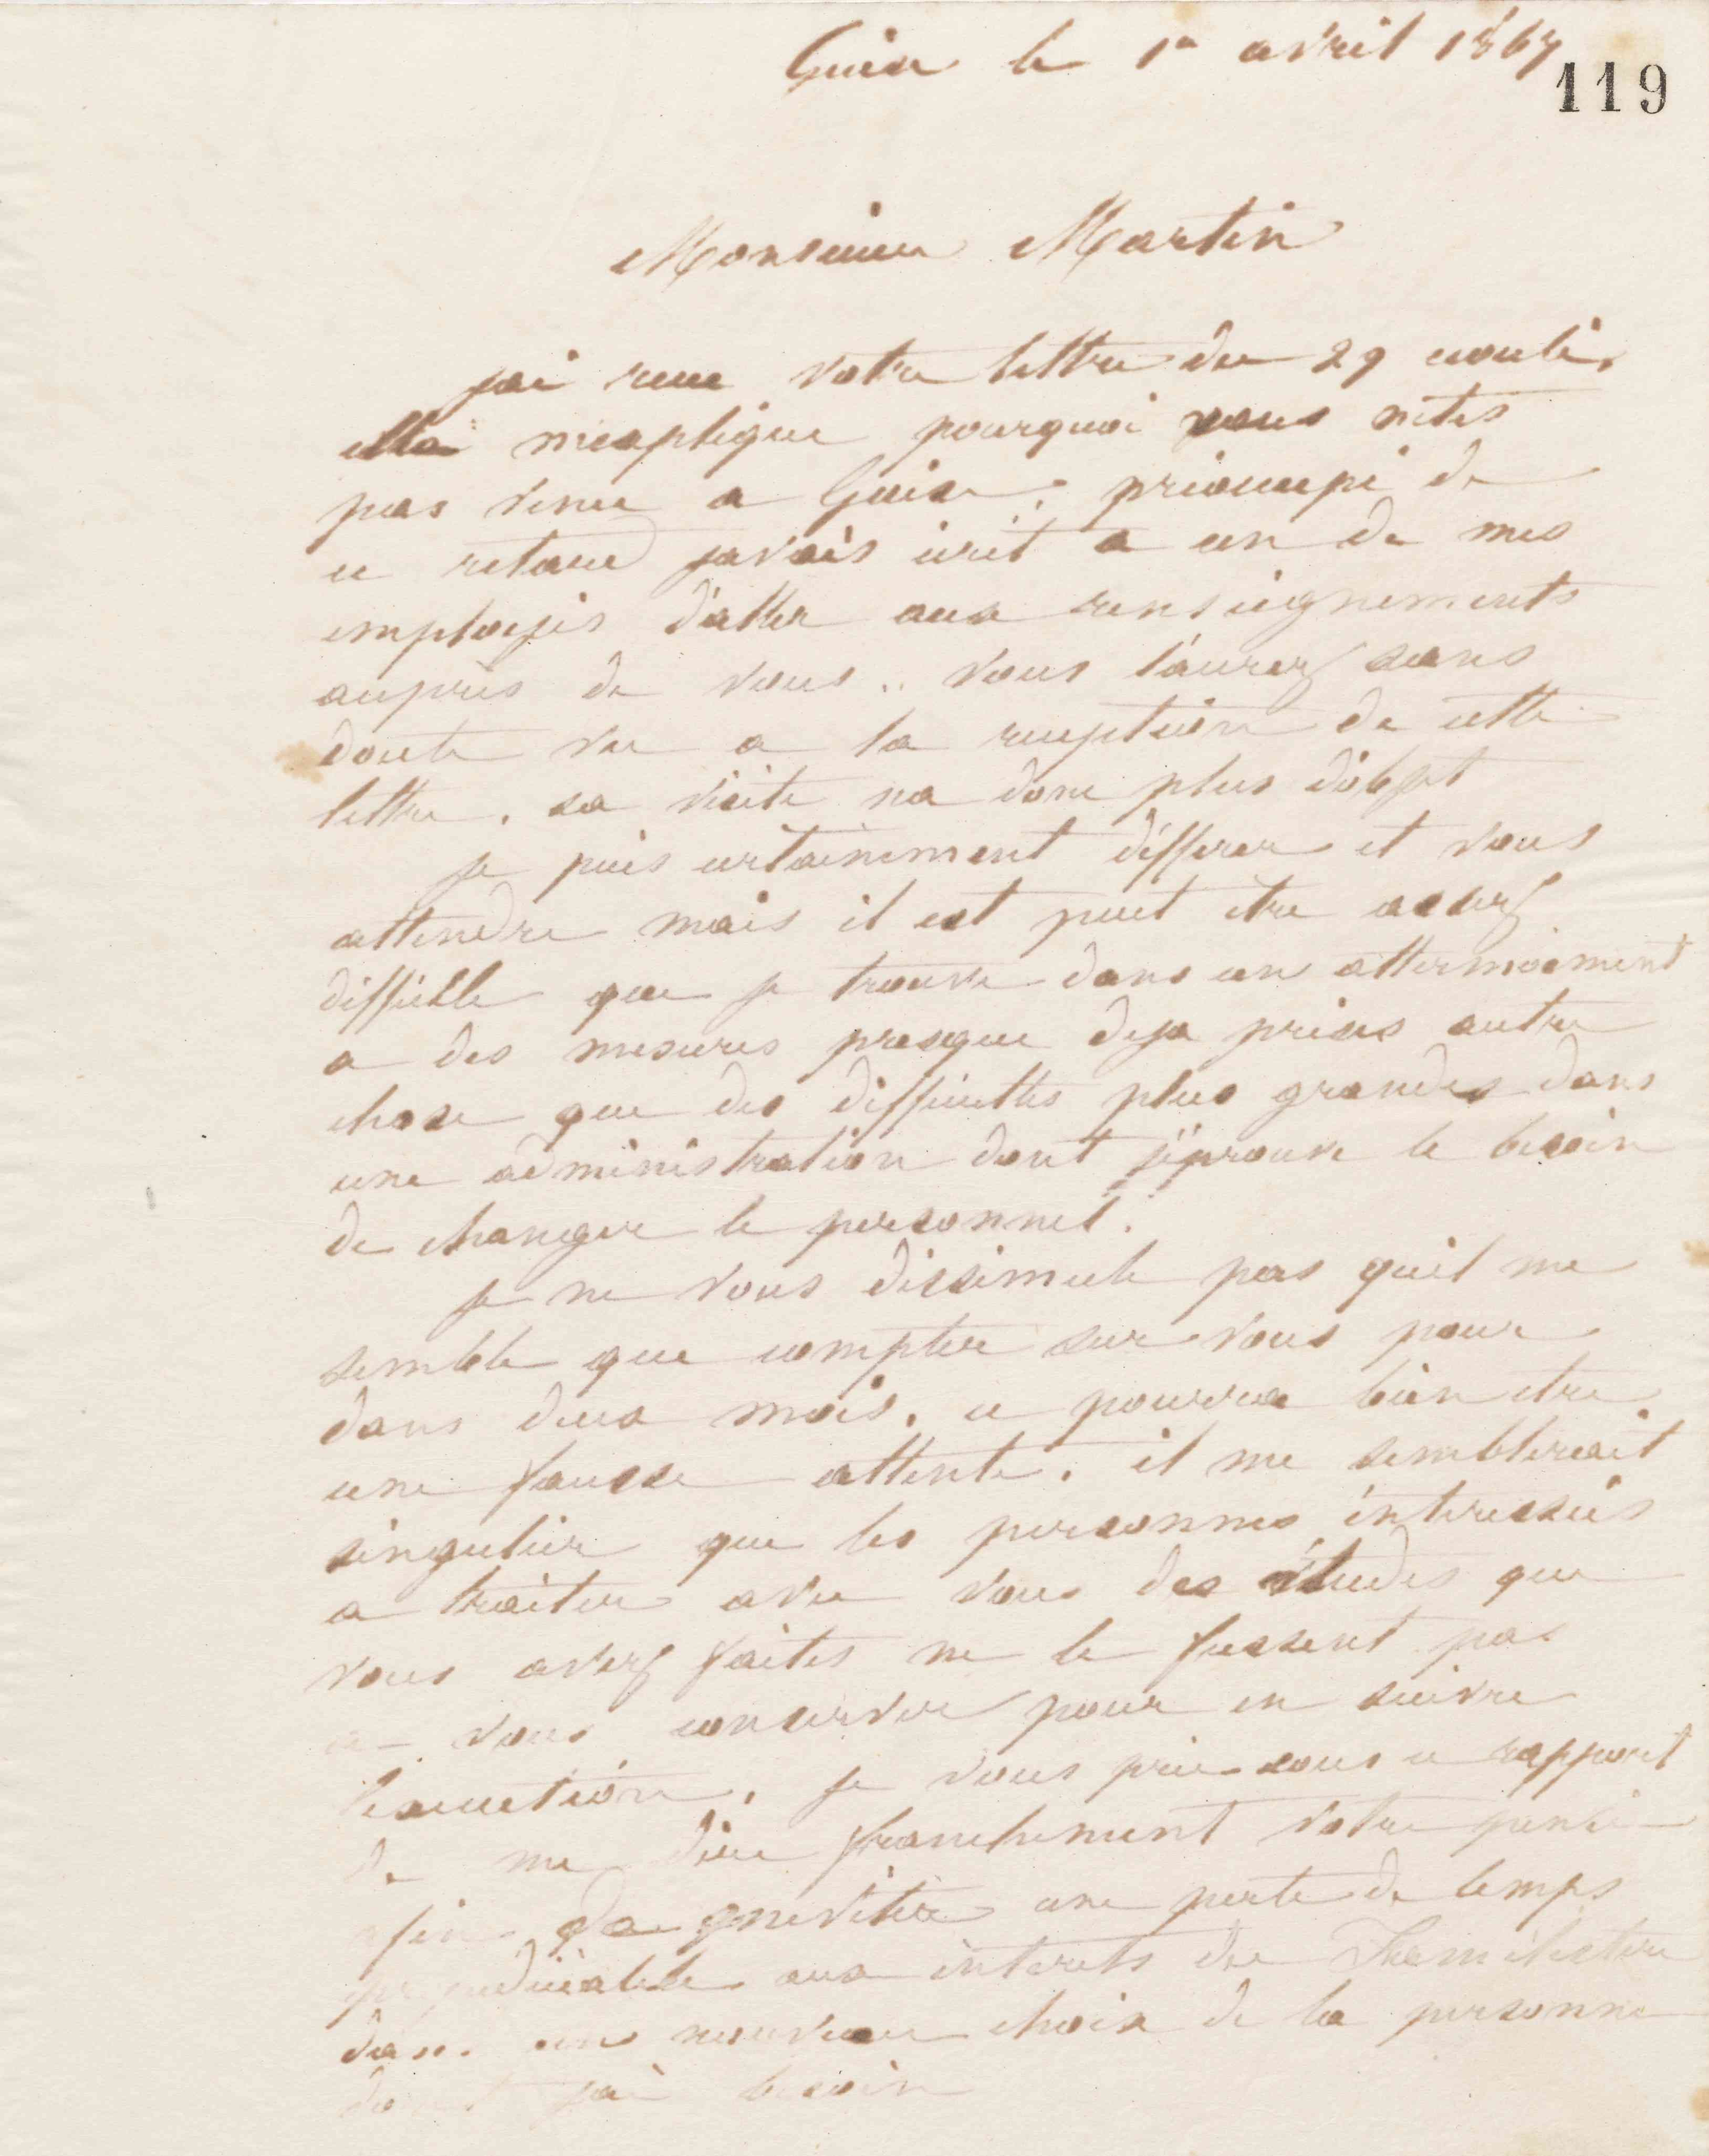 Guise le 1er avril 1867
119
Monsieur Martin
jai recu votre lettre du 29 ecoulé.
elle mexplique pourquoi vous netes
pas venu a Guise. préoccupé de
ce retard javais écrit a un de mes
employés d'aller aux renseignements
aupres de vous. vous l'aurez sans
doute vu a la reception de cette
lettre. sa visite na donc plus dobjet
je puis certainement differer et vous
attendre mais il est peut etre assez
difficile que je trouve dans un attermoiement
a des mesures presque deja prises autre
chose que des difficultés plus grandes dans
une administration dont j'éprouve le besoin
de changer le personnel.
je ne vous dissimule pas quil me
semble que compter sur vous pour
dans deux mois, ce pourra bien etre
une fausse attente. il me semblerait
singulier que les personnes interessées
a traiter avec vous des études que
vous avez faites ne le fussent pas
a vous conserver pour en suivre
lexecution. je vous prie sous ce rapport
de me dire franchement votre pensée
afin de meviter une perte de temps
prejudiciable aux interets du Familistere
dans un nouveau choix de la personne
dont jai besoin